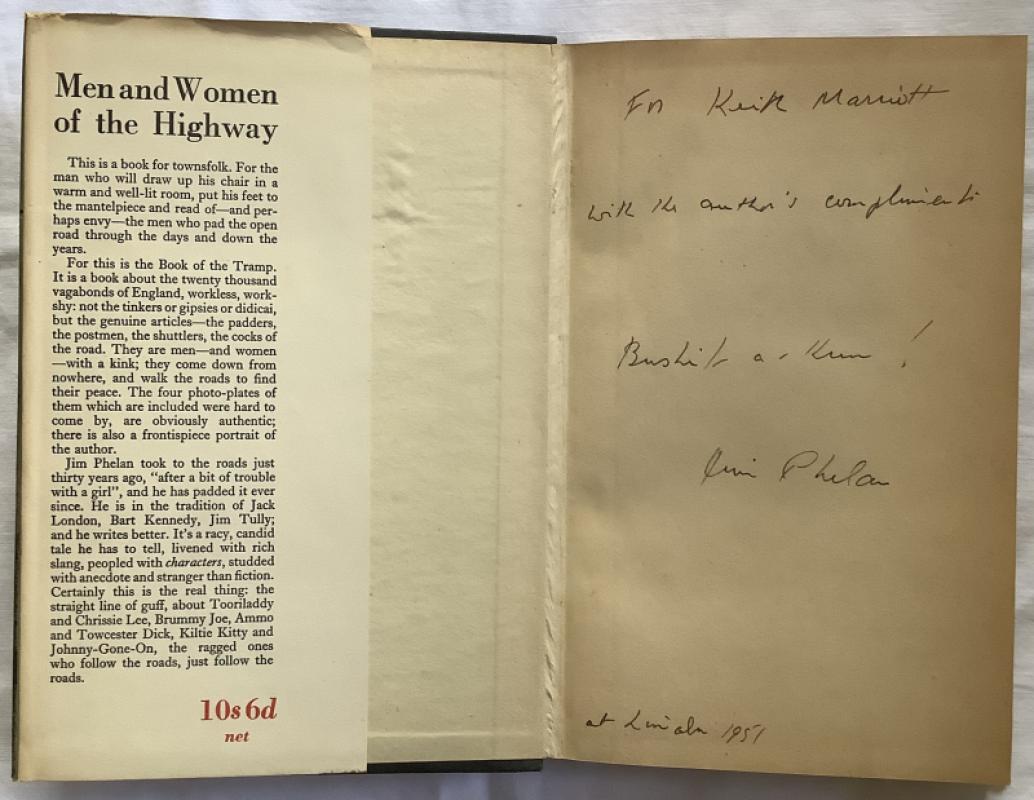 Men and Women
of the Highway
This is a book for townsfolk. For the
man who will draw up his chair in a
warm and well-lit room, put his feet to
the mantelpiece and read of—and per-
haps envy—the men who pad the open
road through the days and down the
years.
For this is the Book of the Tramp.
It is a book about the twenty thousand
vagabonds of England, workless, work-
shy: not the tinkers or gipsies or didicai,
but the genuine articles—the padders,
the postmen, the shuttlers, the cocks of
the road. They are men—and women
—with a kink; they come down from
nowhere, and walk the roads to find
their peace. The four photo-plates of
them which are included were hard to
come by, are obviously authentic;
there is also a frontispiece portrait of
the author.
Jim Phelan took to the roads just
thirty years ago, "after a bit of trouble
with a girl", and he has padded it ever
since. He is in the tradition of Jack
London, Bart Kennedy, Jim Tully;
and he writes better. It's a racy, candid
tale he has to tell, livened with rich
slang, peopled with characters, studded
with anecdote and stranger than fiction.
Certainly this is the real thing: the
straight line of guff, about Tooriladdy
and Chrissie Lee, Brummy Joe, Ammo
and Towcester Dick, Kiltie Kitty and
Johnny-Gone-On, the ragged ones
who follow the roads, just follow the
roads.
10s 6d
net
For Keith Marriott
with the author's compliments
Jim Phelan
at Lincoln 1951